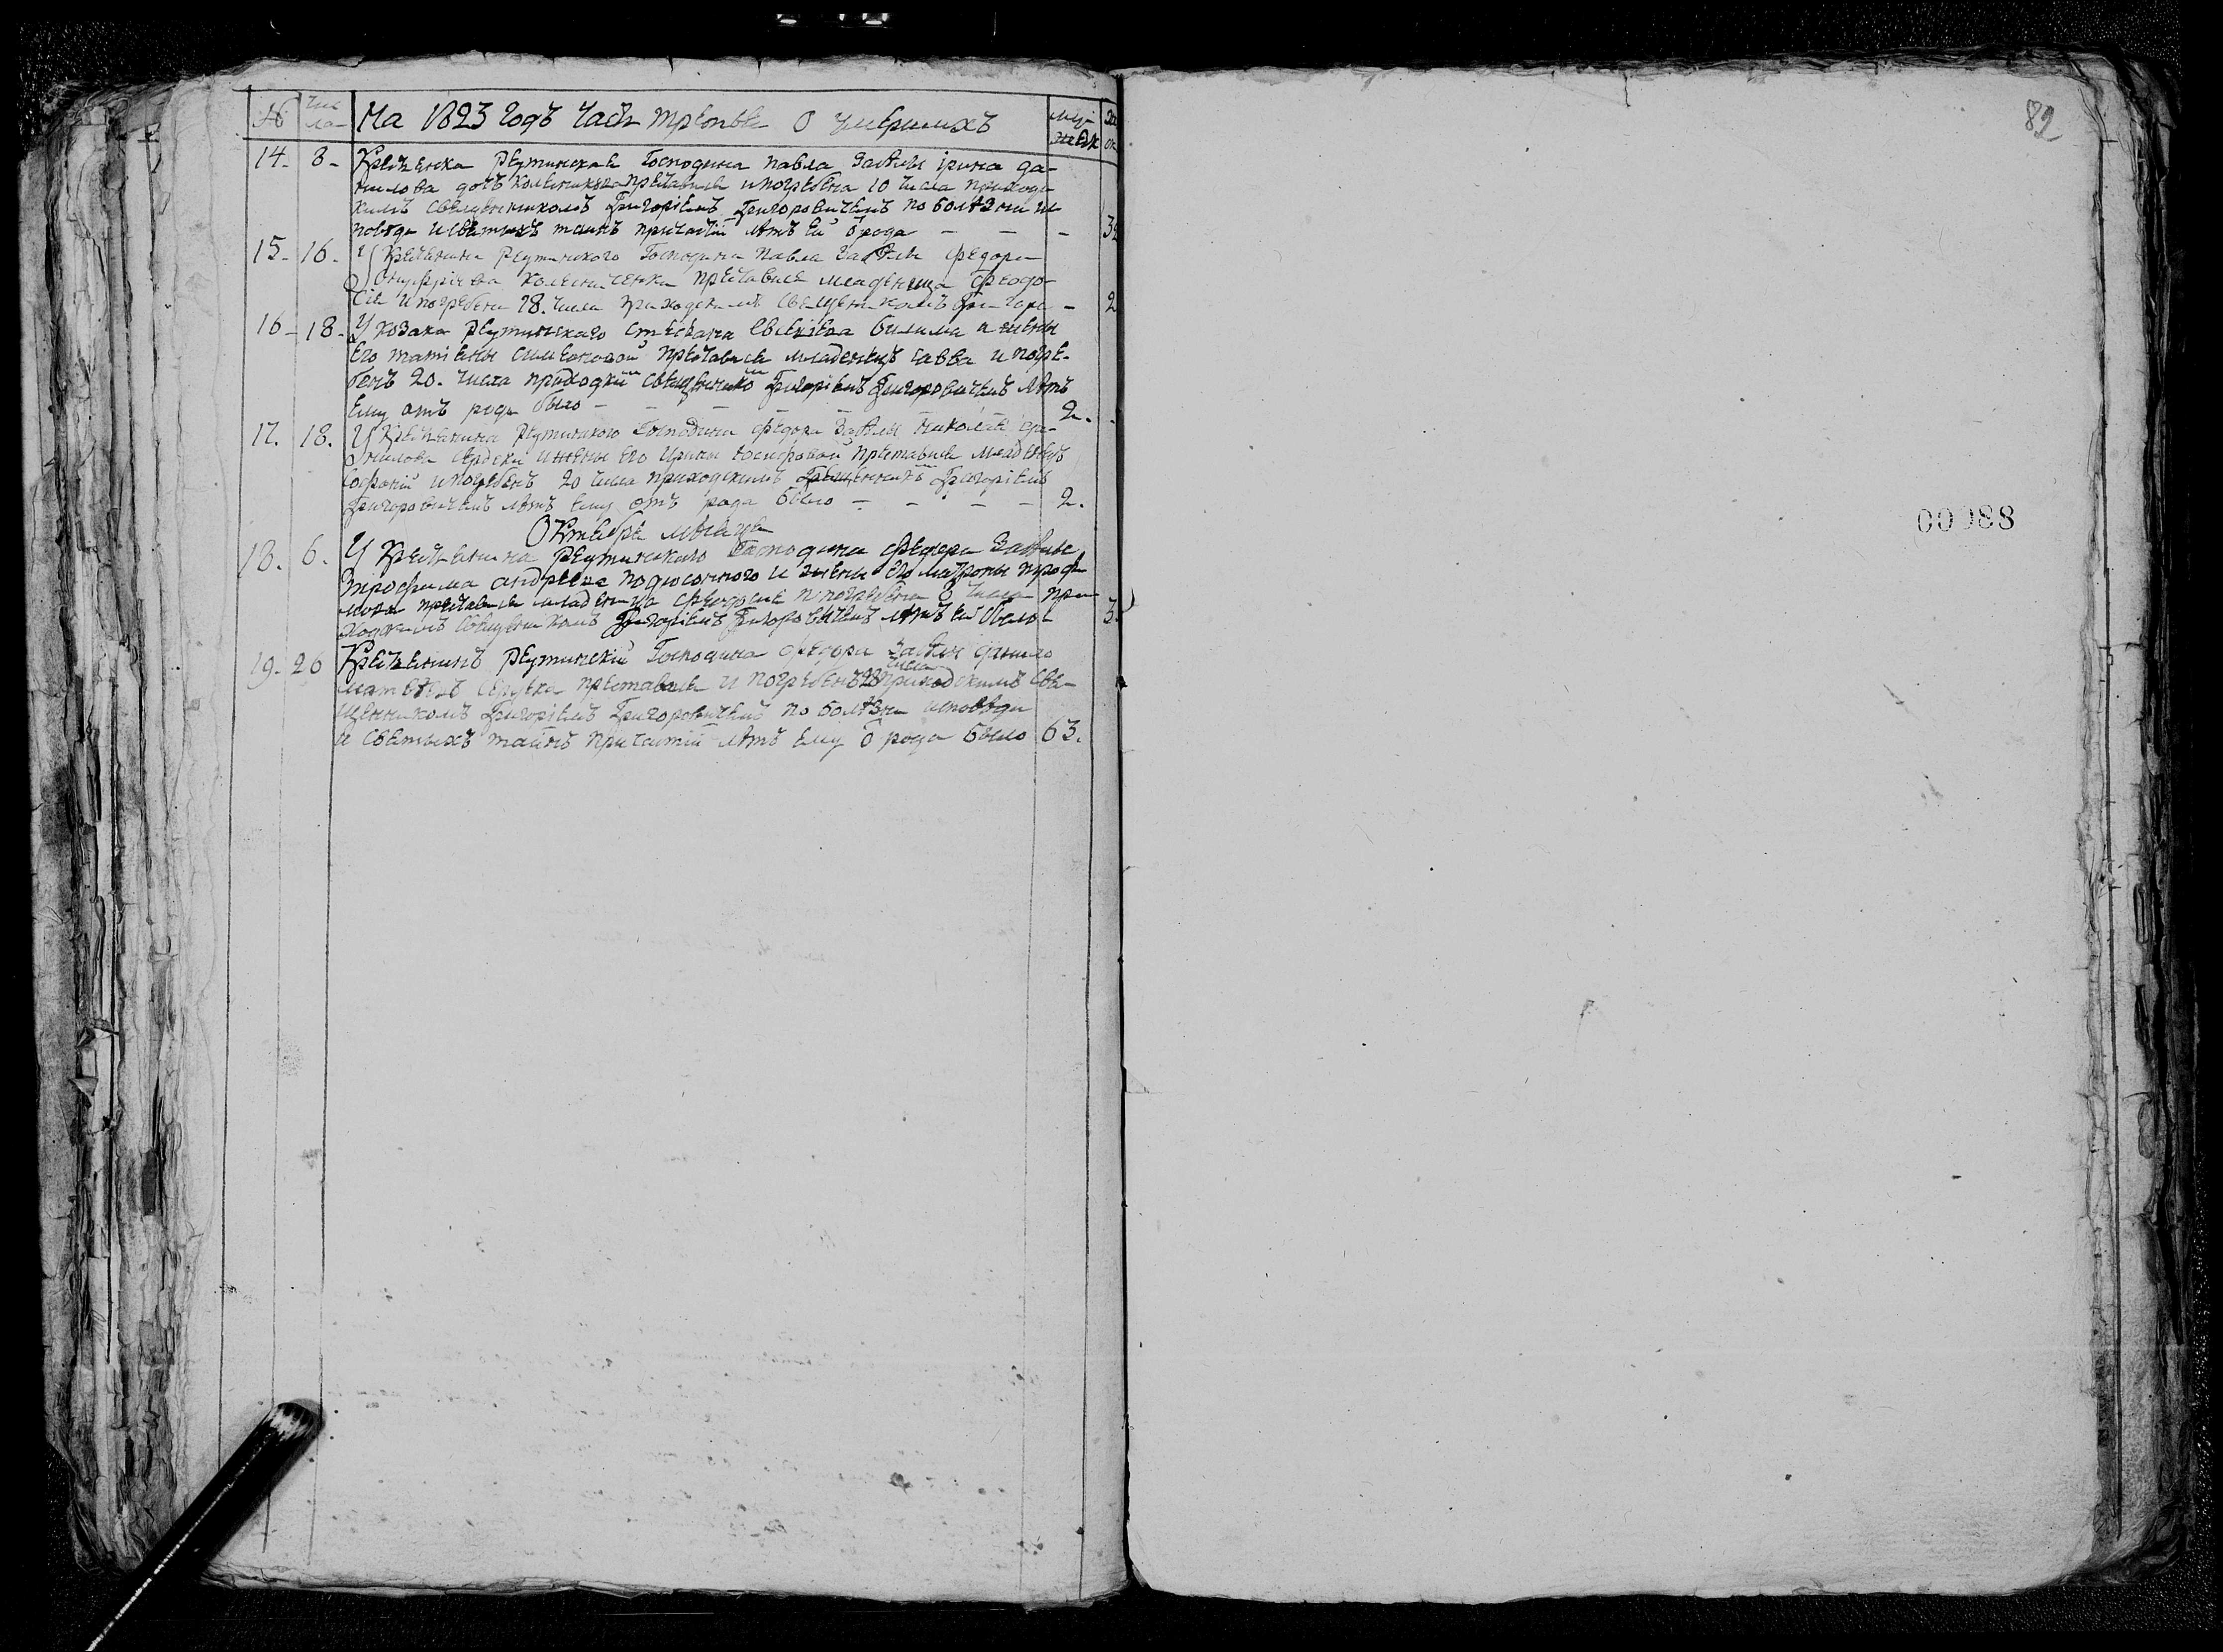 № Чис ла На 1823 годъ часть третья о умершихъ муж жеск
14. 8. Крестьянка Реутинская Господина Павла Заѣлы Ірина Да-
нилова дочъ преставися и погребена 10 числа приход-
скимъ священникомъ Григоріемъ Григоровичемъ по болѣзни ис-
повѣди и святыхъ таинъ причастіи лѣтъ ей ѿ рода
15. 16. У крестьянина Реутинского Господина Павла Заѣлы Федора
преставися младеница Феодо-
сія и погребена 18. числа приходскимъ священникомъ Григорі - 2
16 - 18. У козака Реутинскаго Стефана Билима и жены
его Татіяны Симеоновой преставися младенецъ Савва и погре-
бенъ 20. числа приходскимъ священникомъ Григоріемъ Григоровичемъ лѣтъ
ему отъ рода было 2.
17. 18. У крестьянина Реутинского Господина Федора Заѣлы Николая Да-
нилова и жены его Ирины Іосифовой преставися младенецъ
Софоній и погребенъ 20 числа приходскимъ Григоріемъ
Григоровичемъ лѣтъ ему отъ рода было 2.
Октября мѣсяца
18. 6. У крестьянина Реутинского Господина Федора Заѣлы
Трофима Андреева и жены его Матроны Трофи-
мовой преставися младеница Феодосія и погребена 8 числа при-
ходскимъ священникомъ Григоріемъ Григоровичемъ лѣтъ ей было 3.
19. 26 Крестьянинъ Реутинскій Господина Федора Заѣлы Данило
Матвѣевъ преставися и погребенъ 28 числа приходскимъ свя-
щенникомъ Григоріемъ Григоровичемъ по болѣзни исповѣди
и святыхъ таинъ причастіи лѣтъ ему ѿ рода было 63.
89
00088